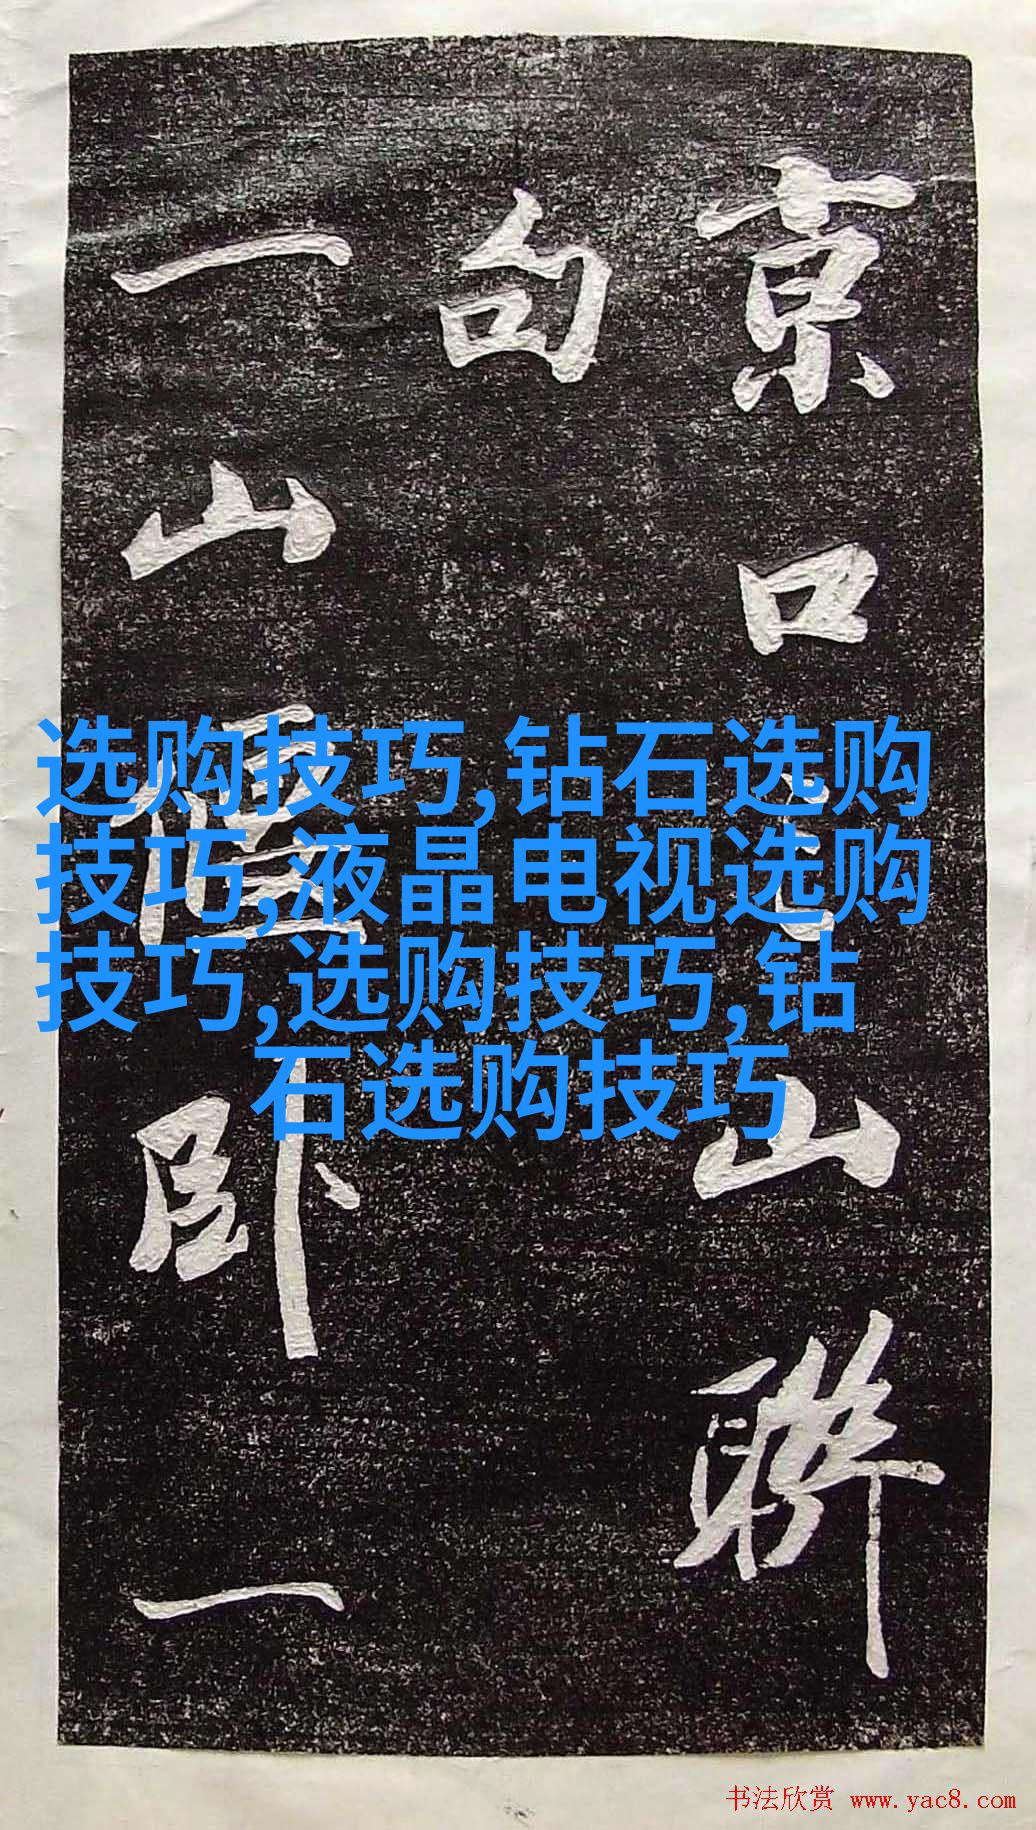 京口山聯
句
一山卧一
选购技巧,钻石选购
技巧,液晶电视选购
技巧,选购技巧,钻
石选购技巧
书法欣赏 www.yac8.com